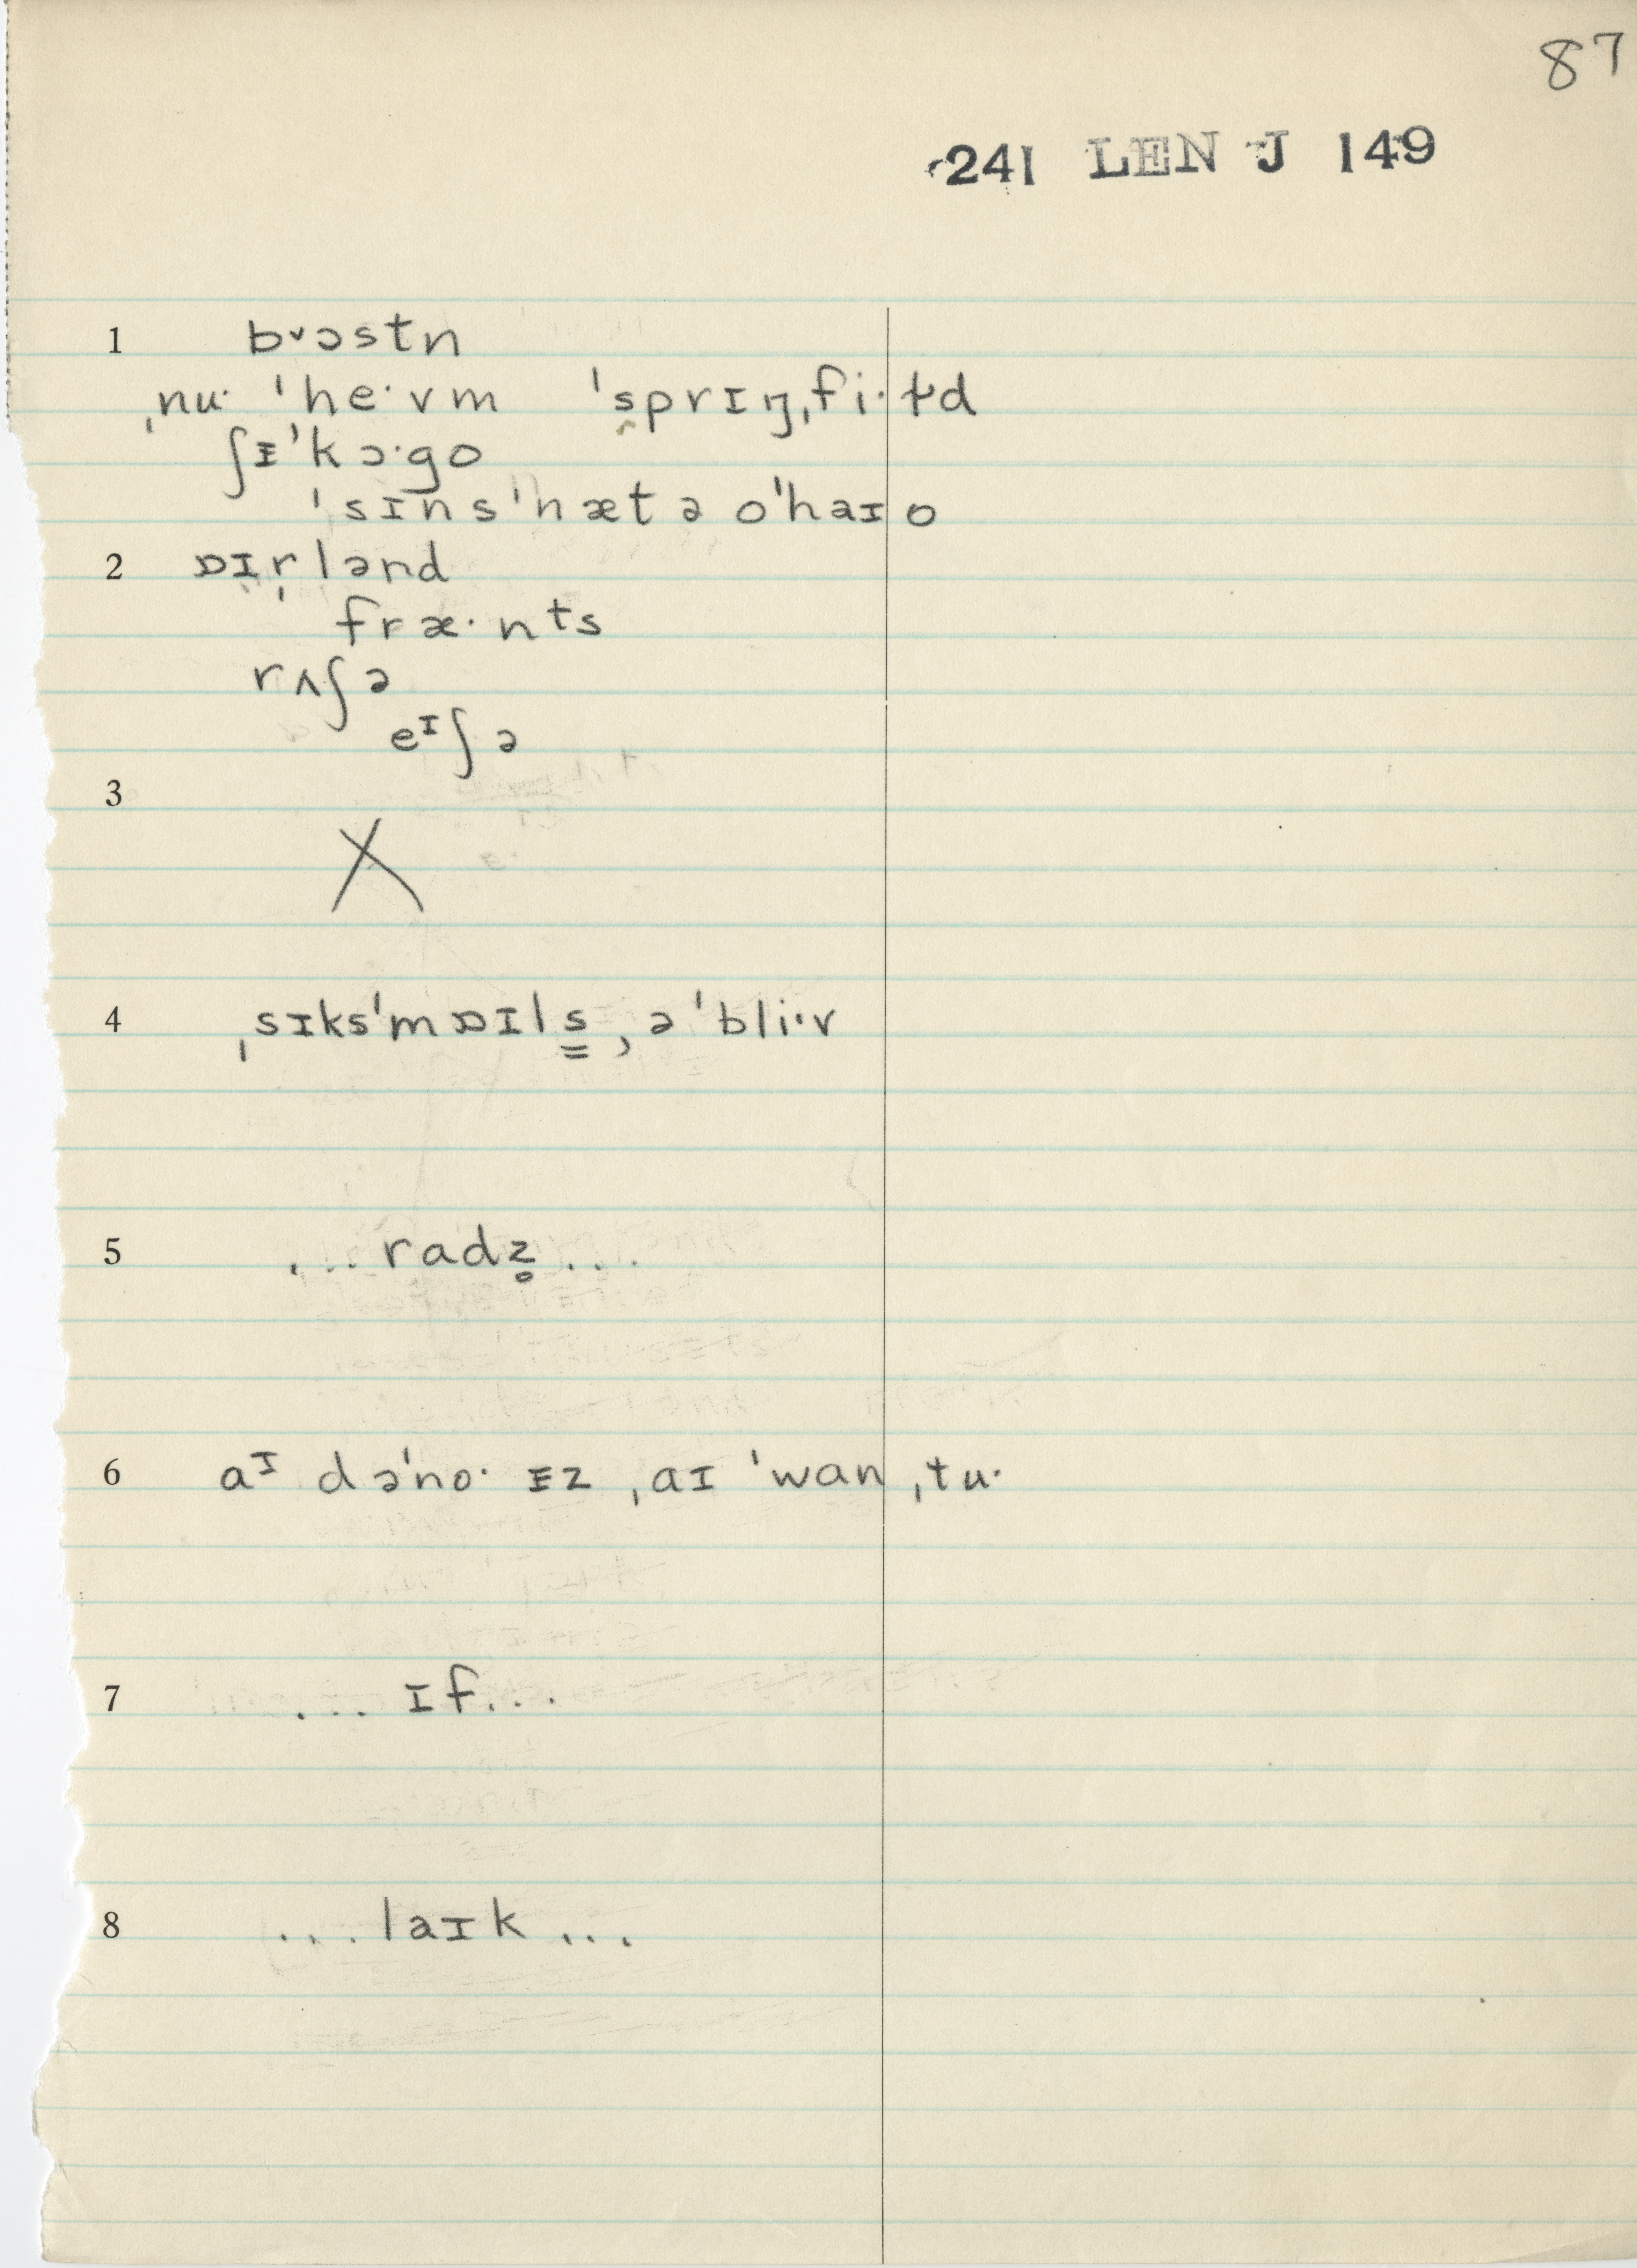 87
241 LEN J 149
1 bᵛɔstn
ˌnuˑ ˈheˑvm ˈsprɪŋˌfiˑɫd
ʃᵻˈkɔˑgo
ˈsɪnsˈnætə oˈhaɪo
2 ɒɪr̩lənd
fræˑnᵗs
rʌʃə
eᶦʃə
3
X
4 ˌsɪksˈmɒɪls͇ ˌəˈbliˑv
5 ... radz̥ ...
6 aᶦ dəˈnoˑ ᵻz ˌaɪ ˈwan ˌtuˑ
7 ... ɪf...
8 ... laɪk ...